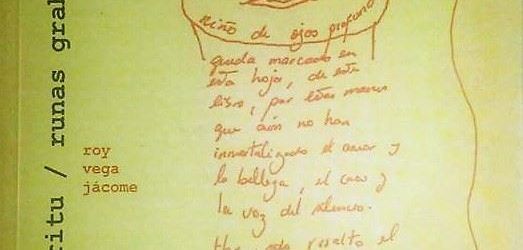 ritu / runas gra
roy
vega
jácome
niño de ojos profundos
queda marcado en
esta hoja, de este
libro, por estas manos
que aún no han
inmortalizado el amor y
la belleza, el caos y
la voz del silencio.
resalto el